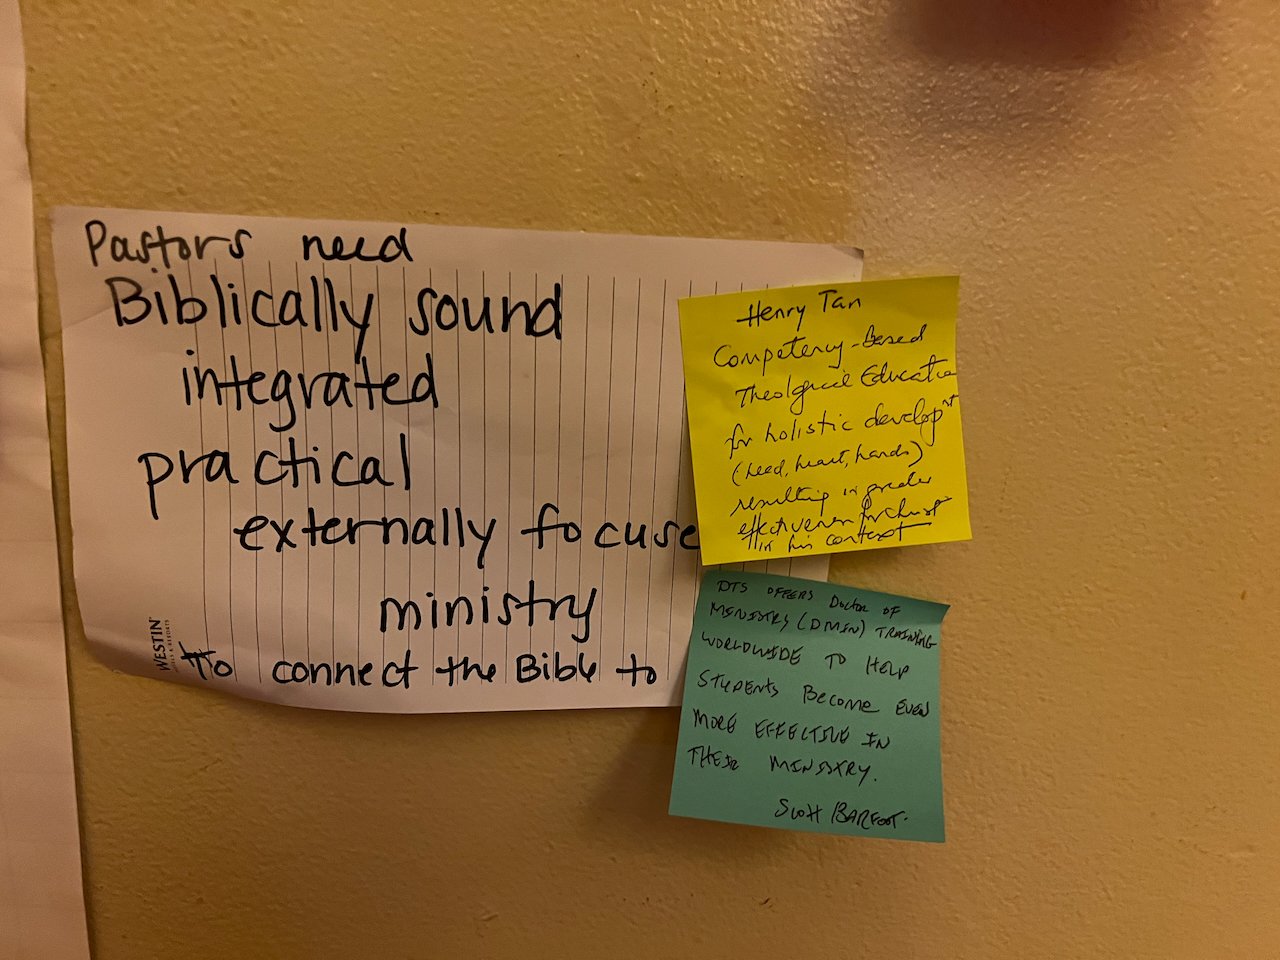 Pastors need
Biblically sound
integrated
practical
externally focuse
ministry
To connect the Bible to
WESTIN
HOTELS & RESORTS
Henry Tan
Competency-Based
Theological Education
for holistic developmt
(head, heart, hands)
resulting in greater
effectiveness for Christ
in his context
DTS OFFERS DOCTOR OF
MINISTRY (DMIN) TRAINING
WORLDWIDE TO HELP
STUDENTS BECOME EVEN
MORE EFFECTIVE IN
THEIR MINISTRY.
SCOTT BARFOOT.